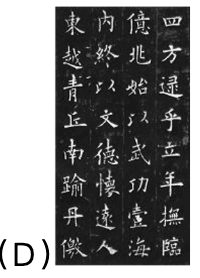 四方逮乎立年撫臨
億兆始以武功壹海
內終以文德懷遠人
東越青丘南踰丹徼
(D)